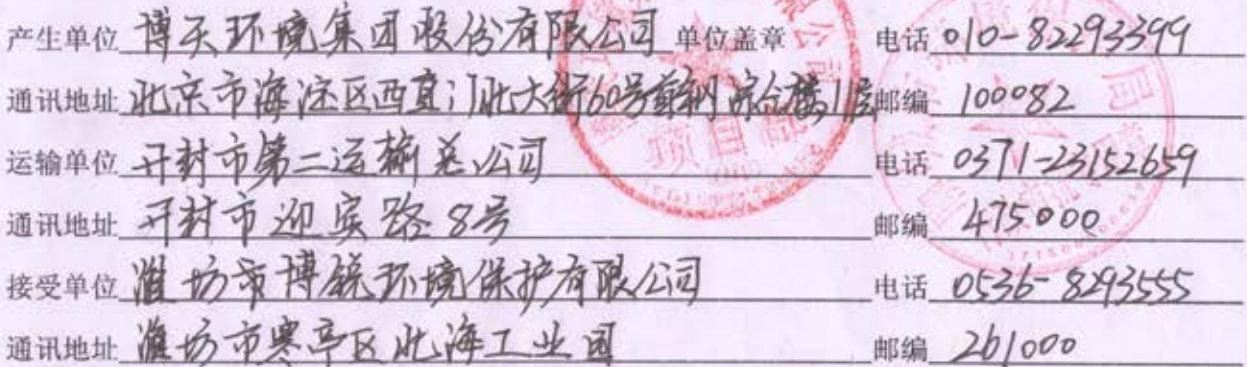 产生单位 博天环境集团股份有限公司 单位盖章 电话 010-82293399
通讯地址 北京市海淀区西直门北大街60号首钢综合楼11层 邮编 100082
运输单位 开封市第二运输总公司 电话 0371-23152659
通讯地址 开封市迎宾路8号 邮编 475000
接受单位 潍坊市博锐环境保护有限公司 电话 0536-8293555
通讯地址 潍坊市寒亭区北海工业园 邮编 261000